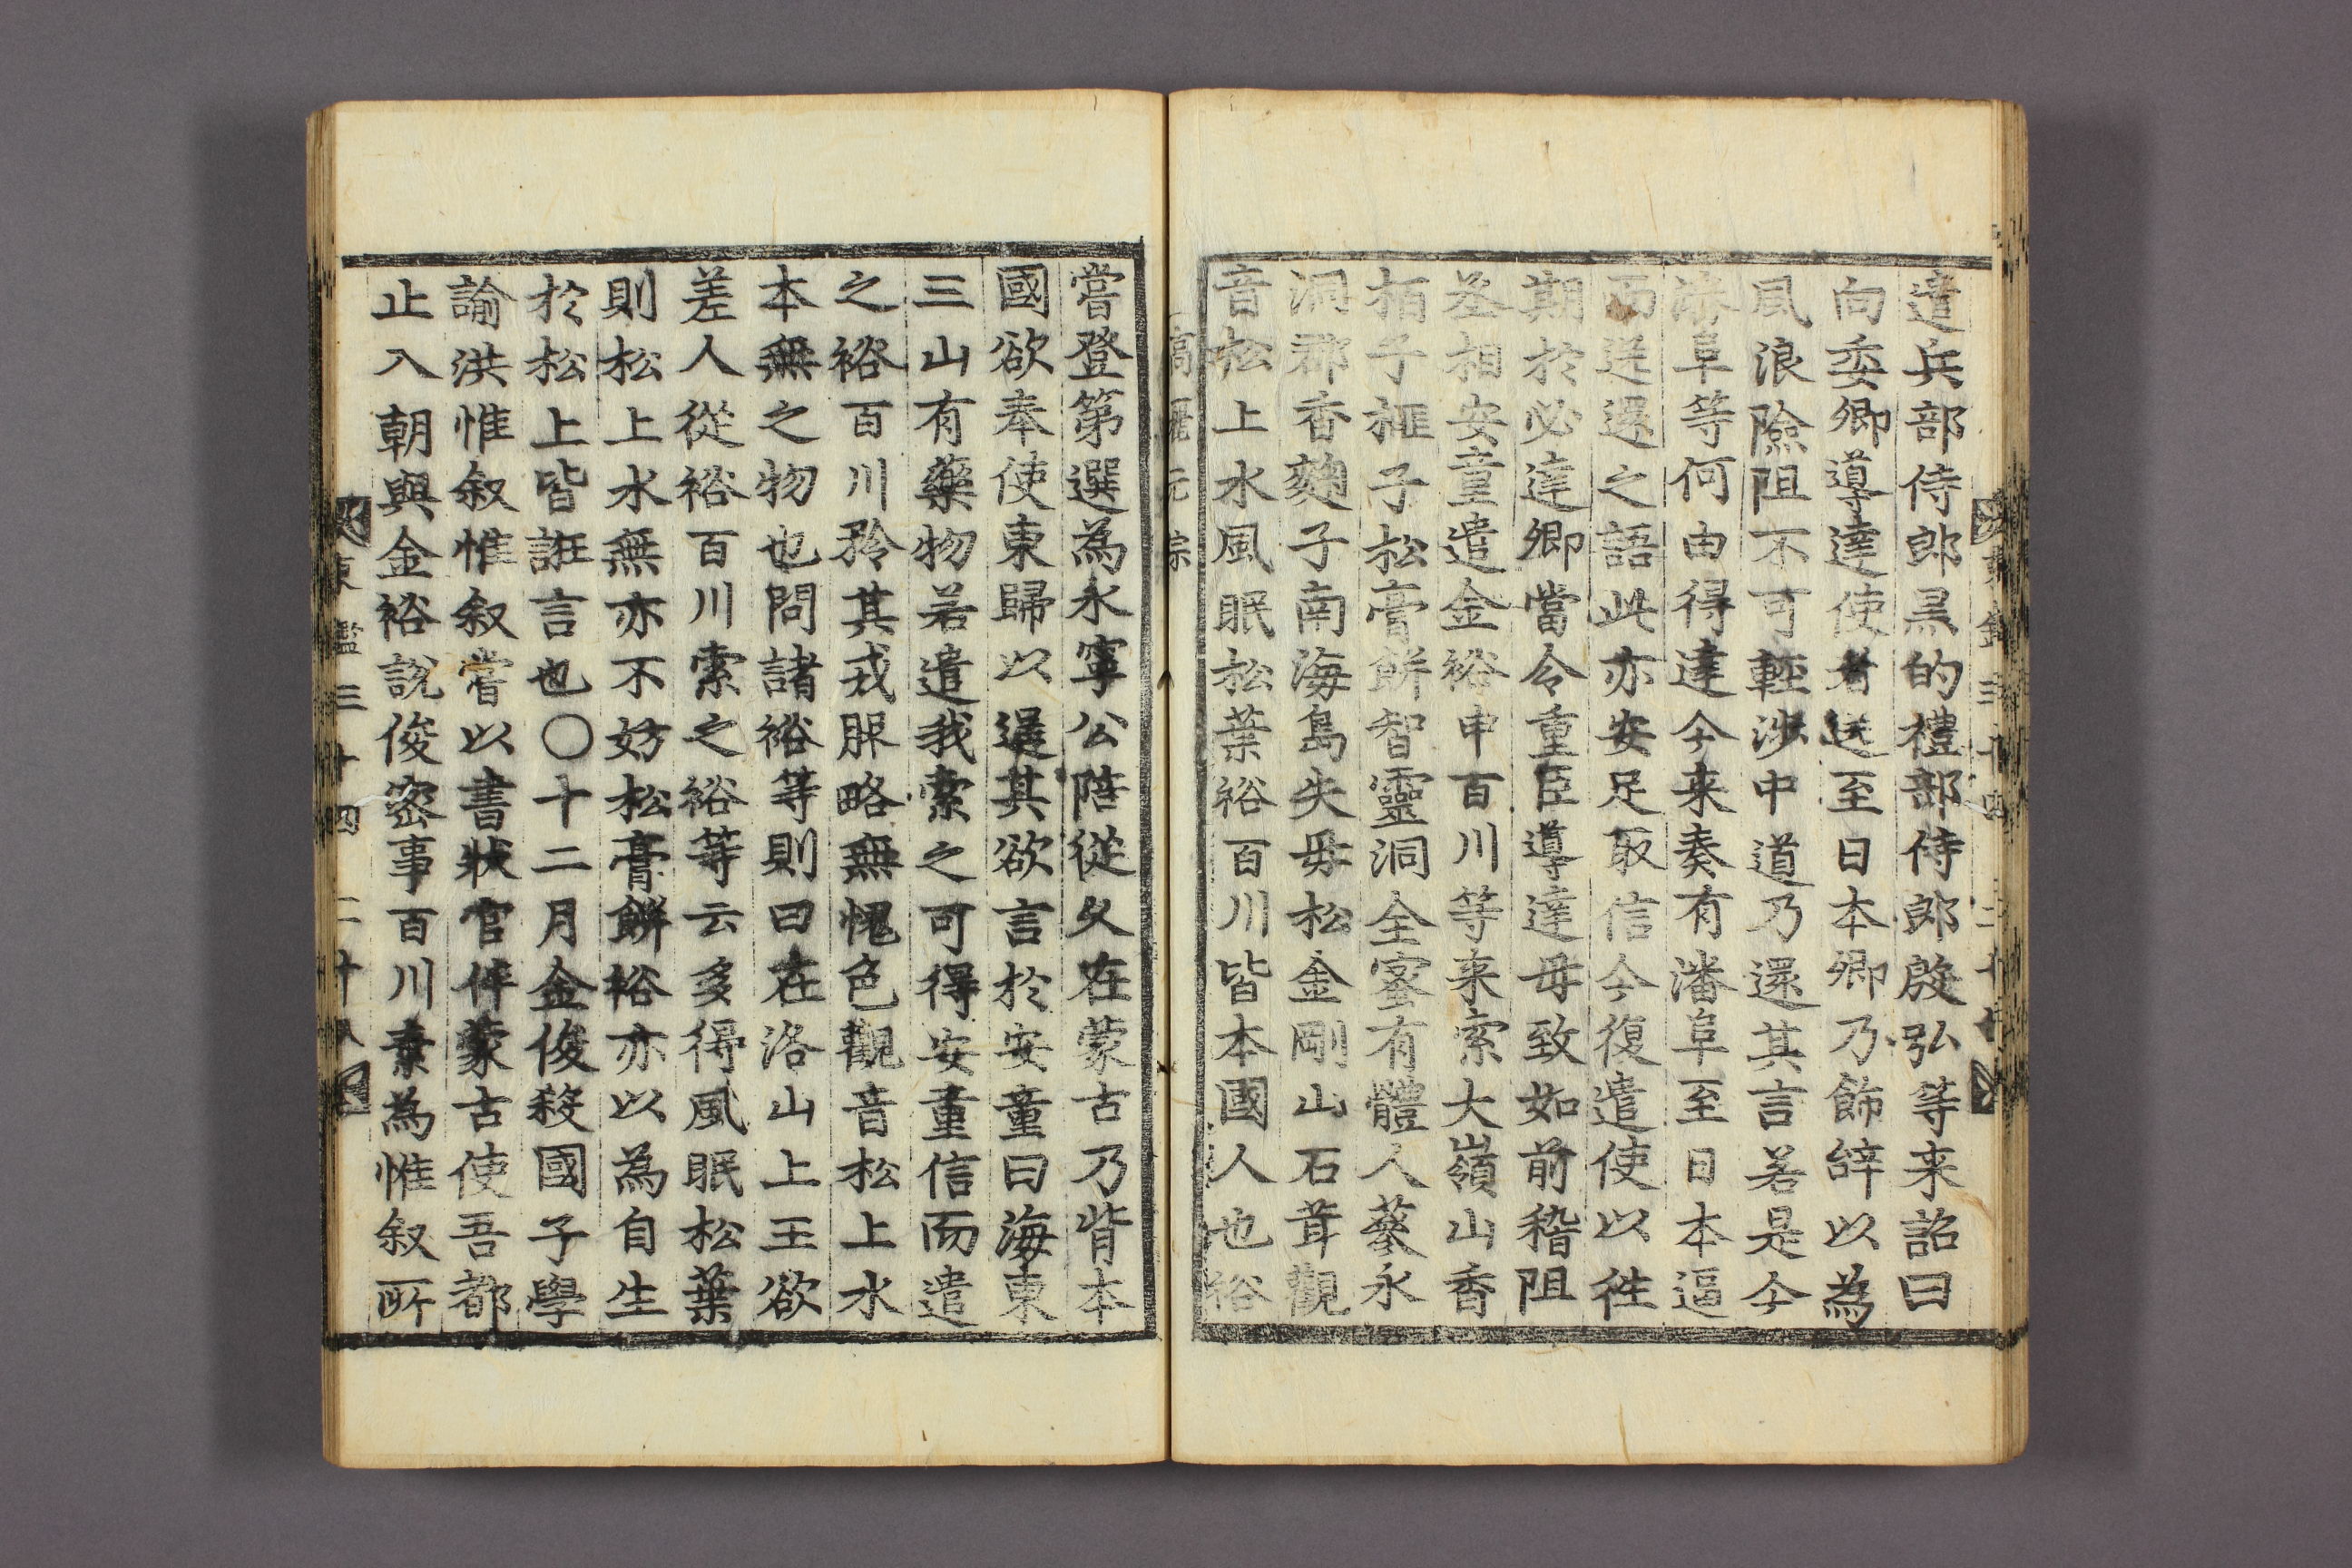 遣兵部侍郎黑的禮部侍郎殷弘等来詔曰
向委卿導達使者送至日本卿乃飾辝以為
風浪險阻不可輕涉中道乃還其言若是今
潘阜等何由得達今来奏有潘阜至日本逼
而送還之語此亦安足取信今復遣使以徃
期於必達卿當令重臣導達毋致如前稽阻
丞相安童遣金裕申百川等来索大嶺山香
栢子榧子松膏餅智靈洞全蜜有體人蔘永
洞郡香麴子南海島失毋松金剛山石茸觀
音松上水風眠松葉裕百川皆本國人也裕
高麗元宗
嘗登第選為永寧公陪從久在蒙古乃背本
國欲奉使東歸以逞其欲言於安童曰海東
三山有藥物若遣我索之可得安童信而遣
之裕百川矜其戎服略無愧色觀音松上水
本無之物也問諸裕等則曰在洛山上王欲
差人從裕百川索之裕等云多得風眠松葉
則松上水無亦不妨松膏餅裕亦以為自生
於松上皆誑言也〇十二月金俊殺國子學
諭洪惟叙惟叙嘗以書狀官伴蒙古使吾都
止入朝與金裕說俊密事百川素為惟叙所
東鑑三十四 二十